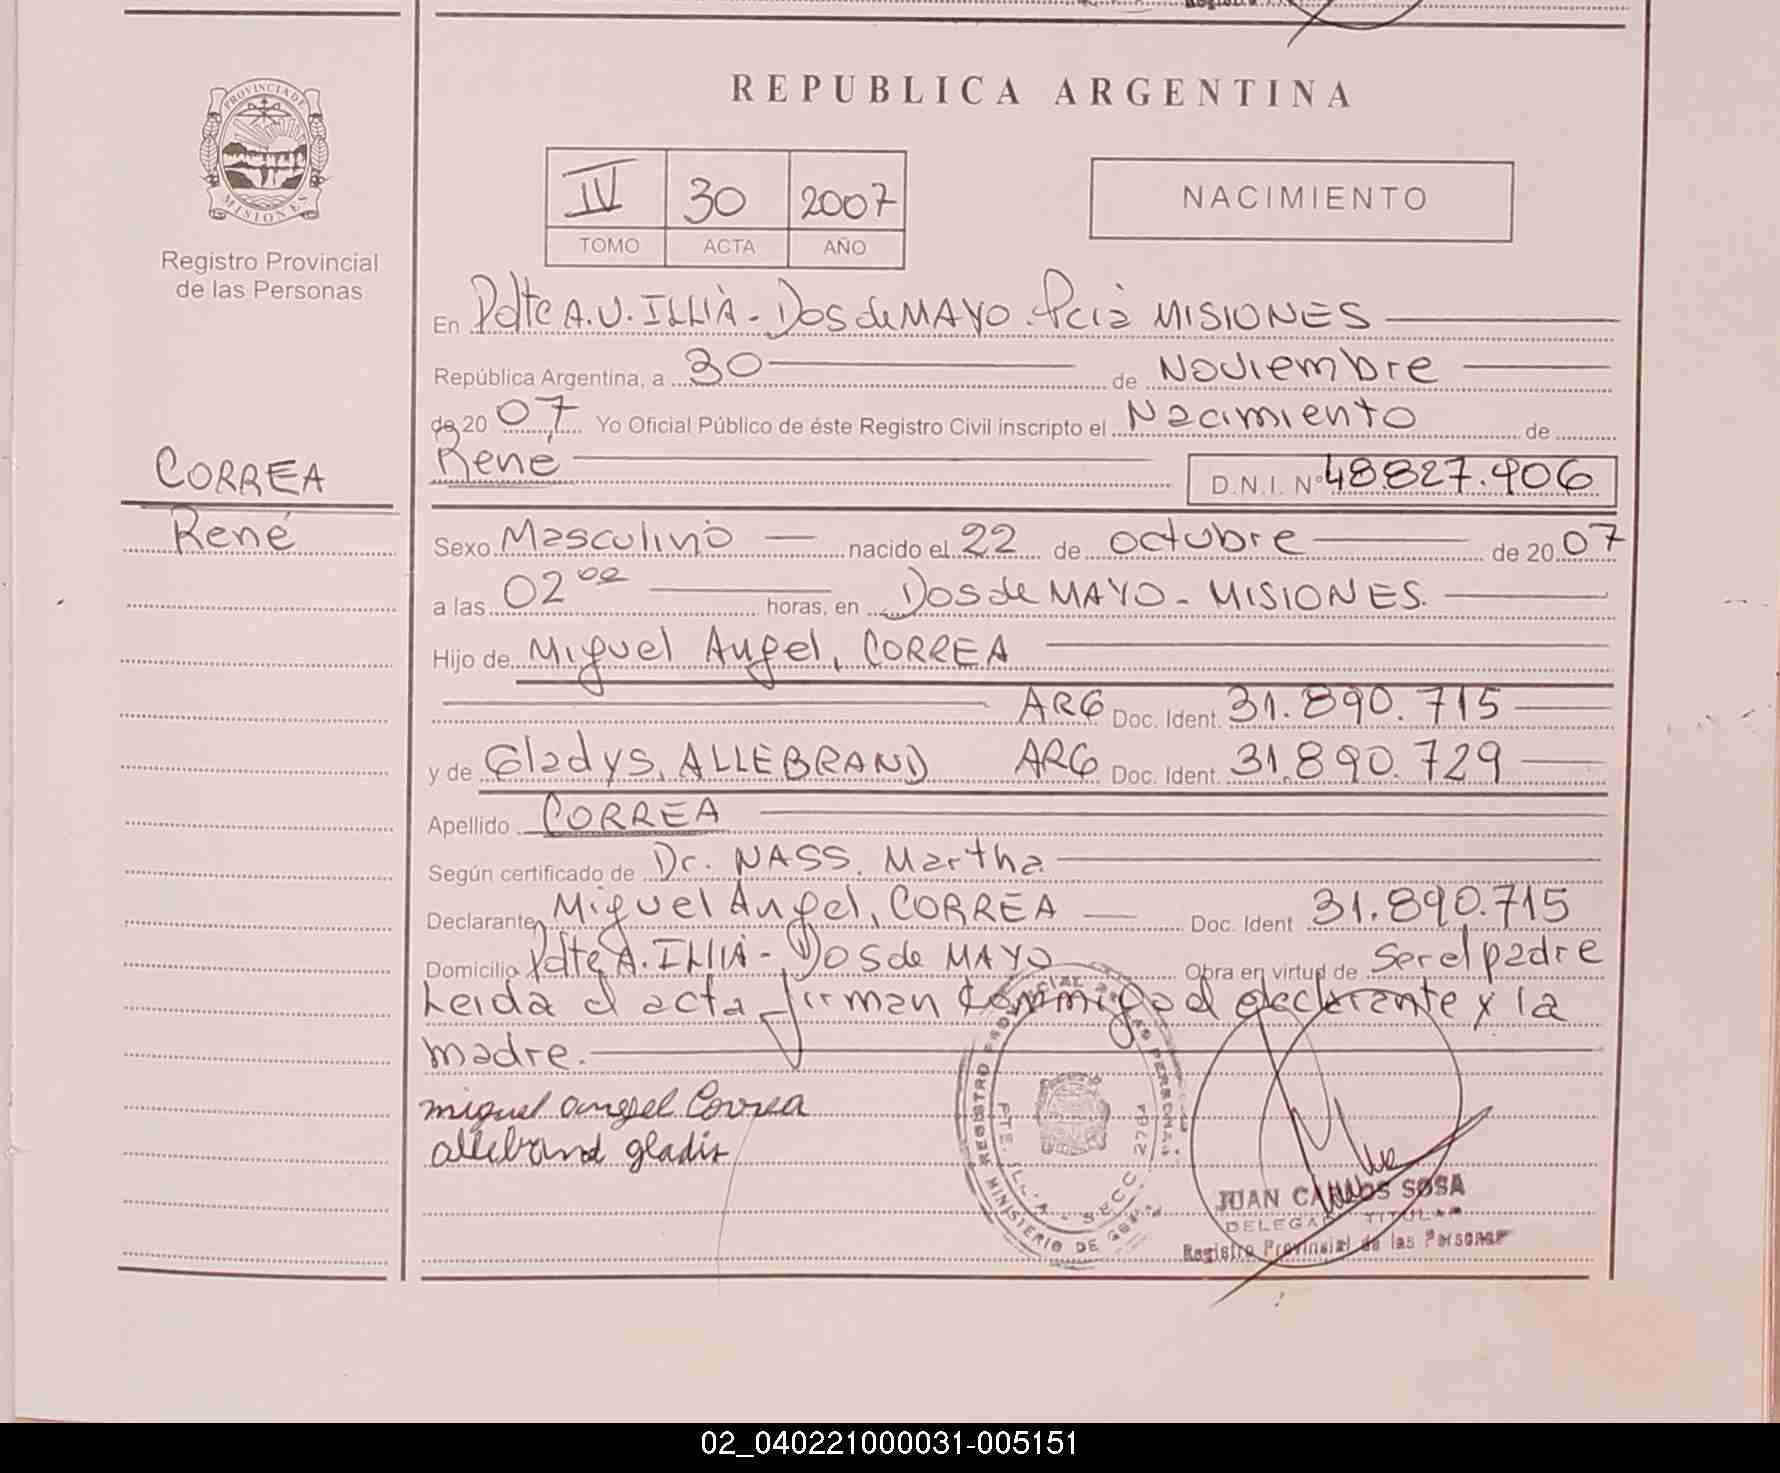 PROVINCIA DE
MISIONES
Registro Provincial
de las Personas
CORREA
René
REPUBLICA ARGENTINA
IV 30 2007
TOMO ACTA AÑO
NACIMIENTO
En Pdte A.U. ILLIA - Dos de MAYO. Pcia MISIONES
República Argentina, a 30 de Noviembre
de 20 07, Yo Oficial Público de éste Registro Civil inscripto el Nacimiento de
Rene D.N.I. Nº 48827.906
Sexo Masculino nacido el 22 de octubre de 20 07
a las 02 00 horas, en Dos de MAYO - MISIONES.
Hijo de Miguel Angel, CORREA
ARG Doc. Ident. 31.890.715
y de Gladys, ALLEBRAND ARG Doc. Ident. 31.890.729
Apellido CORREA
Según certificado de Dr. NASS, Martha
Declarante Miguel Angel, CORREA Doc. Ident 31.890.715
Domicilio Pdte A. ILLIA - Dos de MAYO Obra en virtud de Ser el padre
Leida el acta firman conmigo el declarante y la
madre.
miguel angel Correa
allebrand gladis
REGISTRO PROVINCIAL DE LAS PERSONAS
MINISTERIO DE
SECC. 2767
JUAN CARLOS SOSA
DELEGADO TITULAR
Registro Provincial de las Personas
02_040221000031-005151